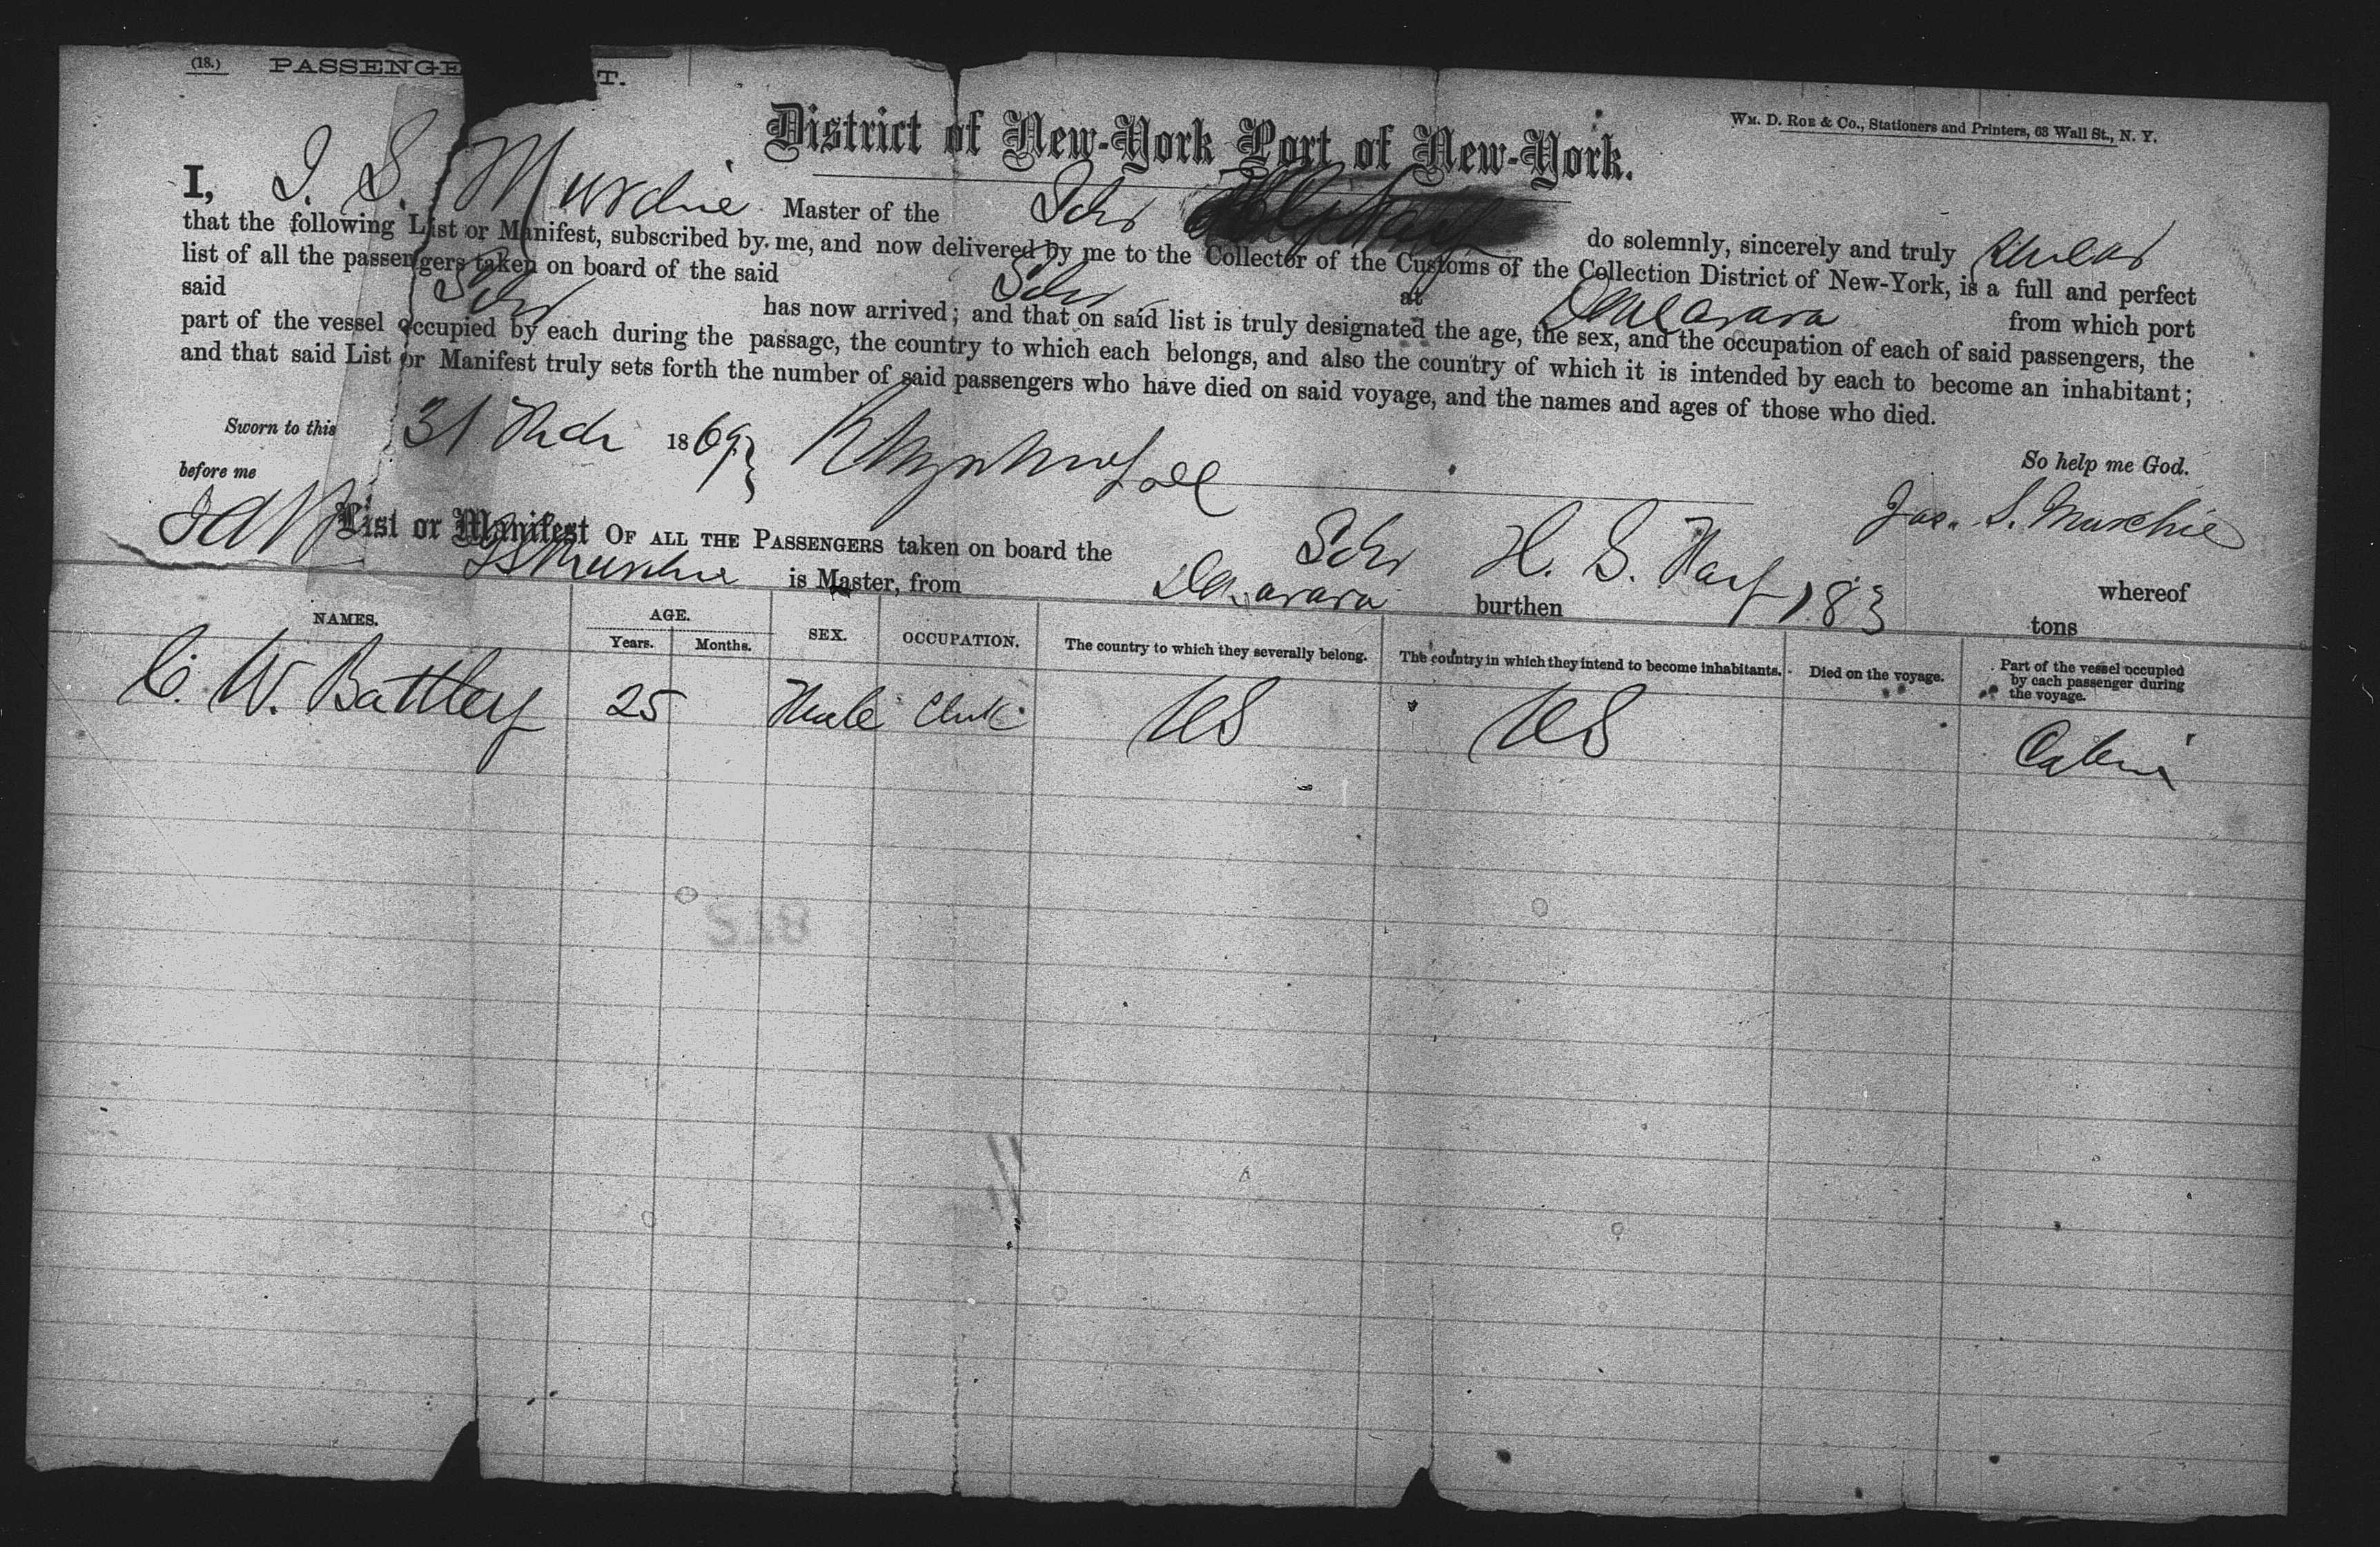 (18.) PASSENGE T.
District of New-York Port of New-York.
WM. D. ROE & Co., Stationers and Printers, 63 Wall St., N. Y.
I, J. S. Murchie Master of the Schr do solemnly, sincerely and truly swear
that the following List or Manifest, subscribed by me, and now delivered by me to the Collector of the Customs of the Collection District of New-York, is a full and perfect
list of all the passengers taken on board of the said Schr at Demarara from which port
said Schr has now arrived; and that on said list is truly designated the age, the sex, and the occupation of each of said passengers, the
part of the vessel occupied by each during the passage, the country to which each belongs, and also the country of which it is intended by each to become an inhabitant;
and that said List or Manifest truly sets forth the number of said passengers who have died on said voyage, and the names and ages of those who died.
Sworn to this 31 Mch 1869 So help me God.
before me Jas. S. Murchie
List or Manifest OF ALL THE PASSENGERS taken on board the Schr H. S. whereof
J S Murchie is Master, from Demarara burthen 183 tons
NAMES. AGE. Years. Months. SEX. OCCUPATION. The country to which they severally belong. The country in which they intend to become inhabitants. Died on the voyage. Part of the vessel occupied by each passenger during the voyage.
C. W. Battley 25 Male Clerk US US Cabin